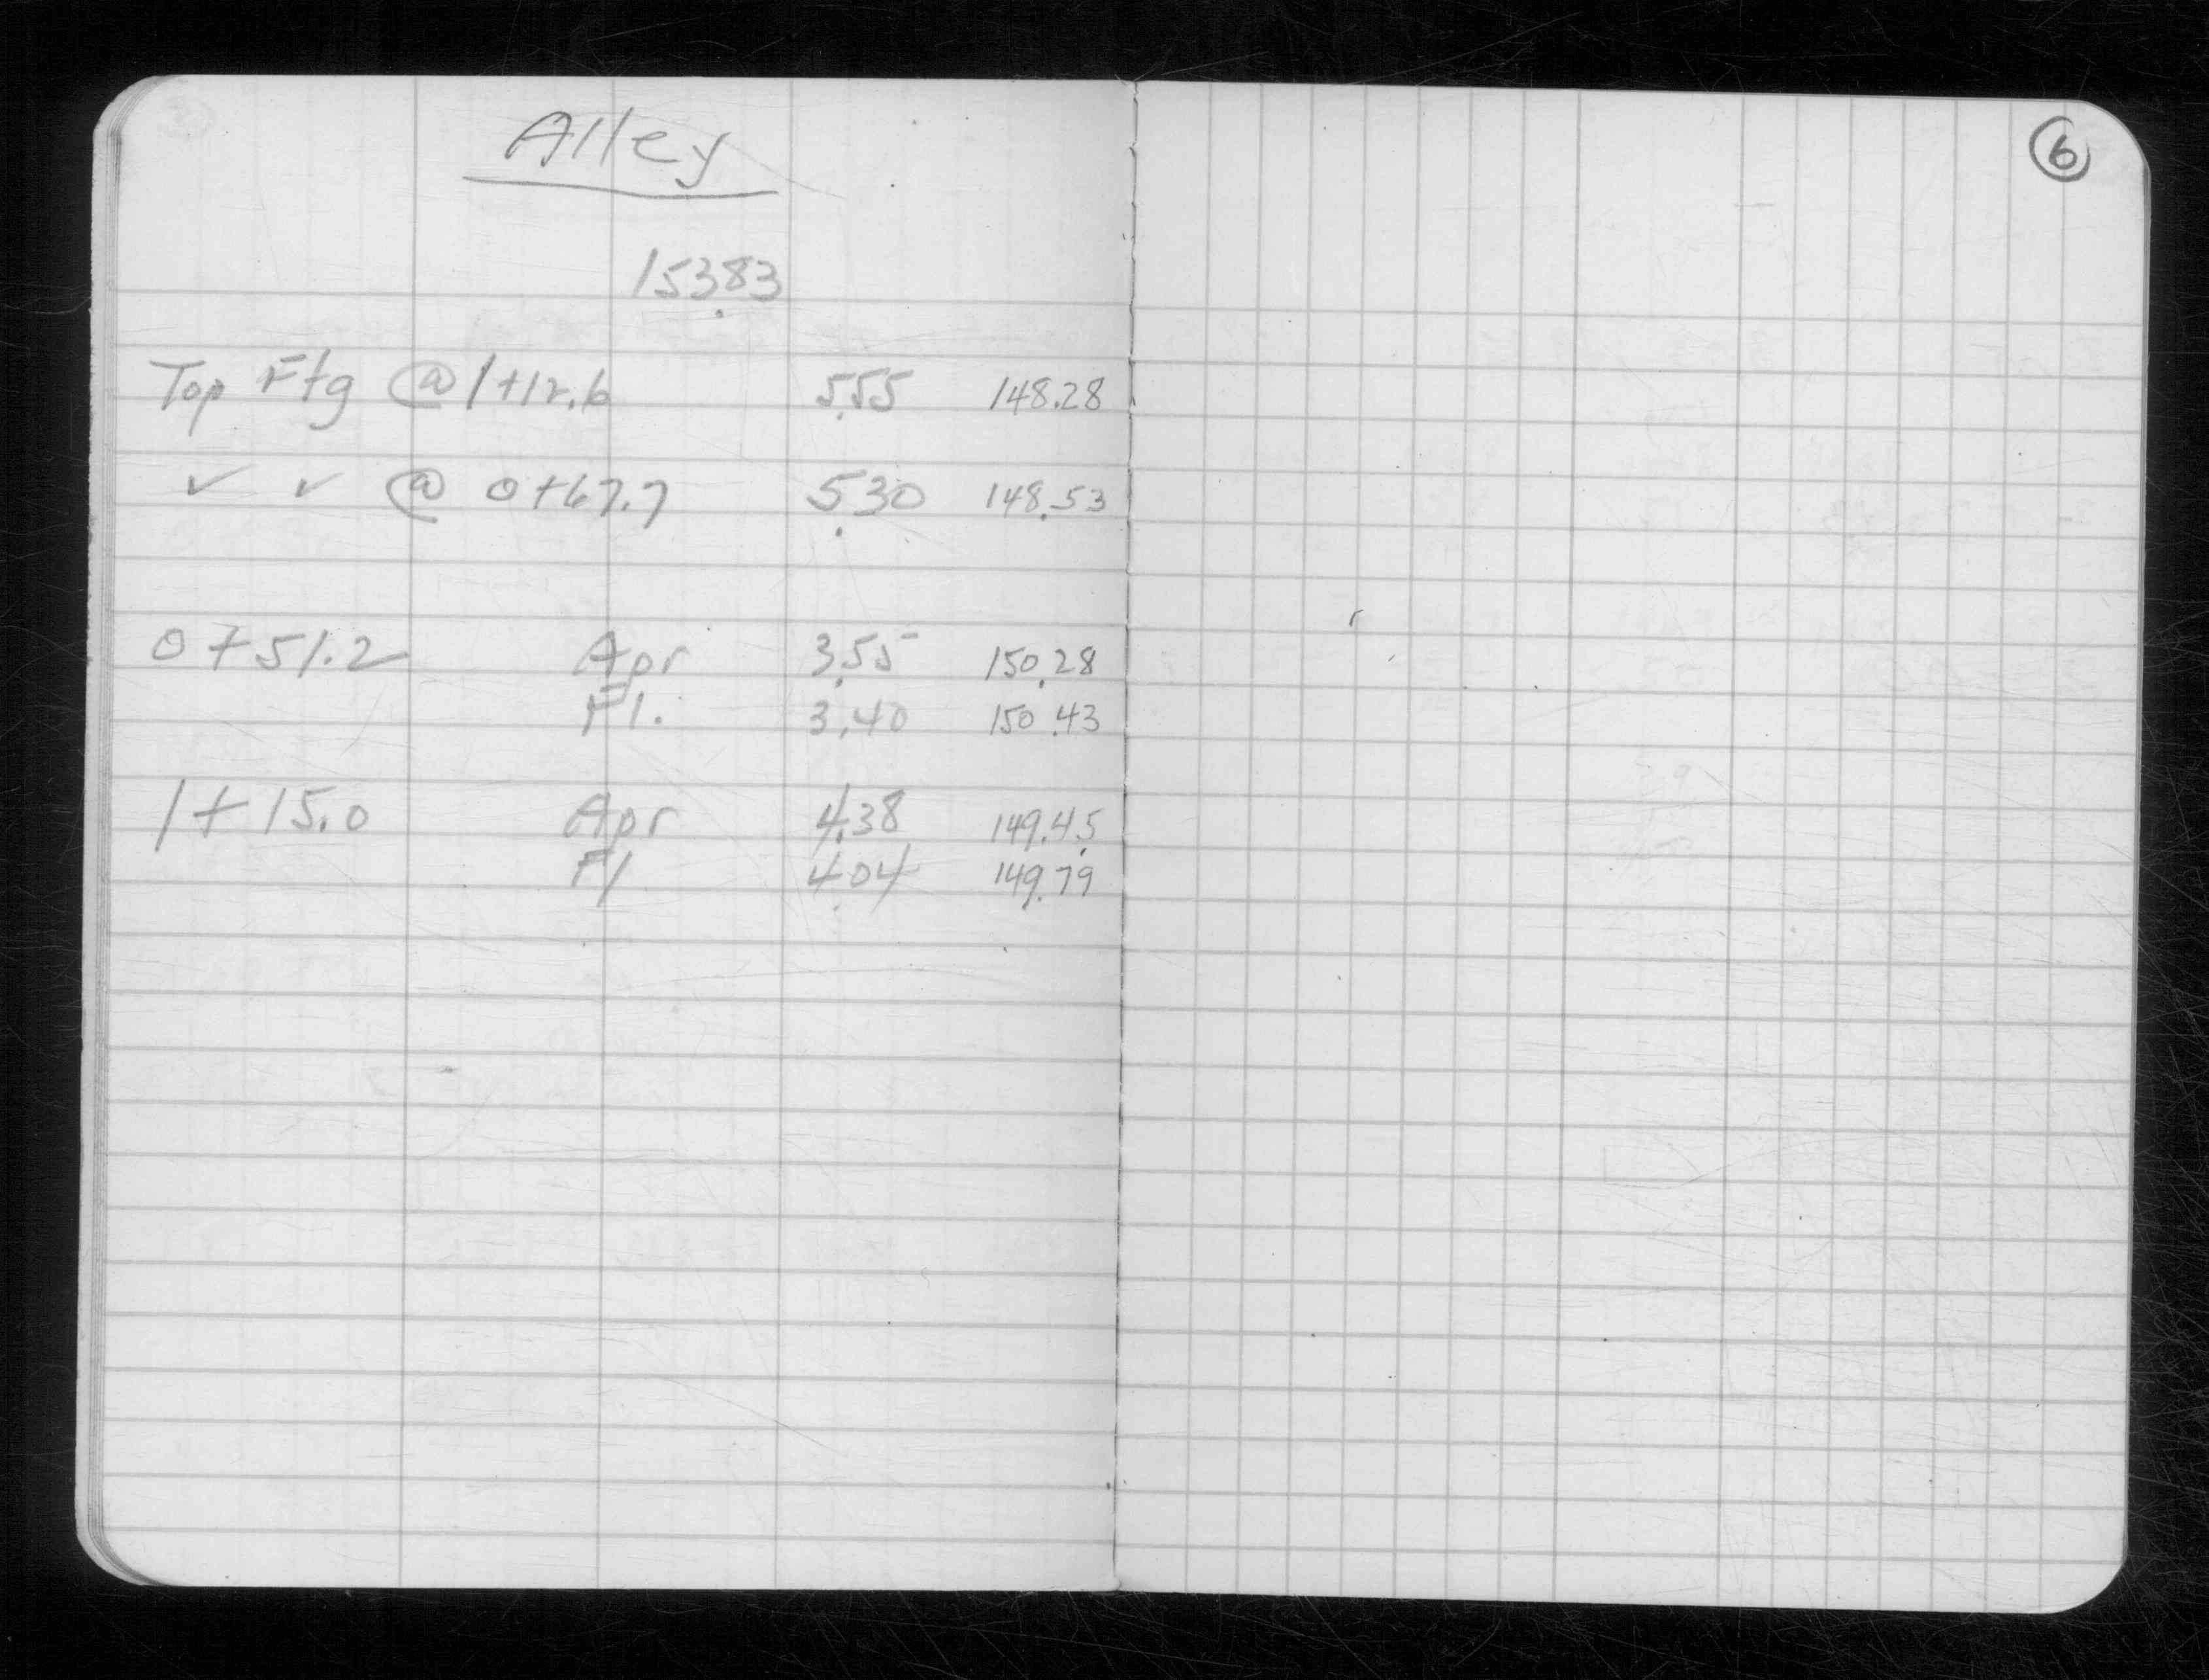 Alley
6
153.83
Top Ftg @ 1+12.6 5.55 148.28
✓ ✓ @ 0+67.7 5.30 148.53
0+51.2 Apr 3.55 150.28
Fl. 3.40 150.43
1+15.0 Apr 4.38 149.45
Fl 4.04 149.79